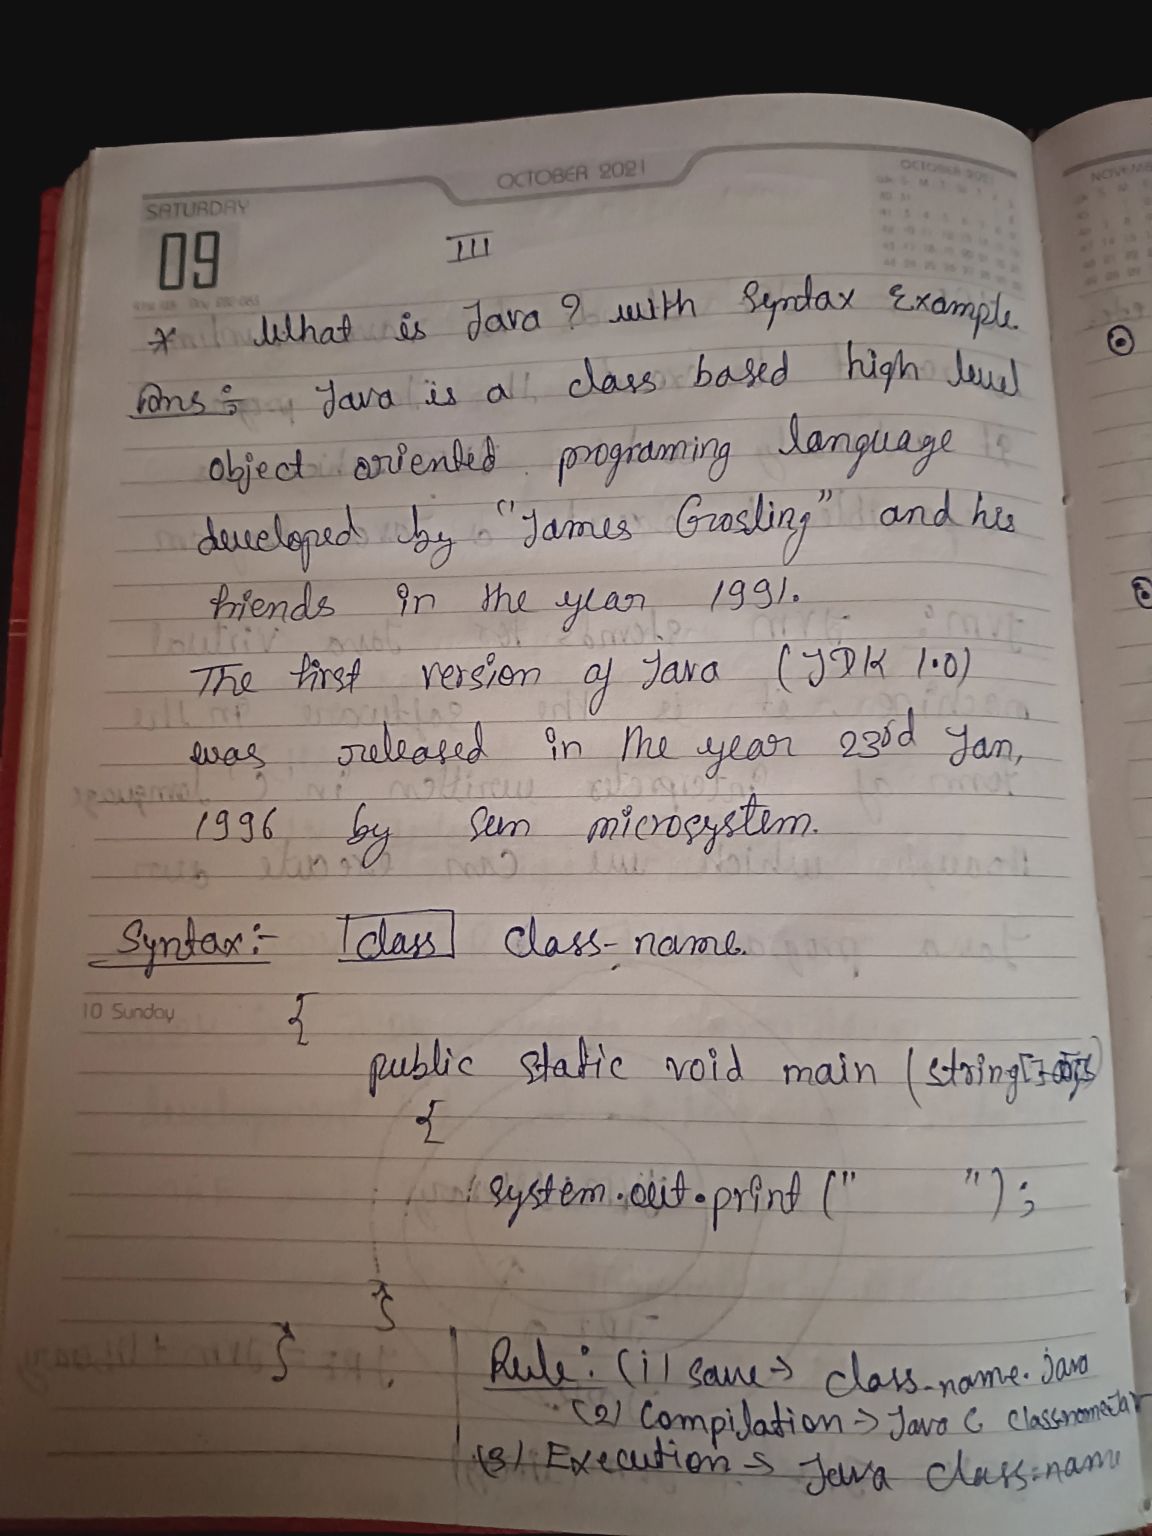 OCTOBER 2021
OCTOBER 2021
SATURDAY
09
III
* What is Java? with Syndax Example.
Ans:- Java is a class based high level
object oriented programing language
developed by "James Grosling" and his
friends in the year 1991.
The first version of Java (JDK 1.0)
was released in the year 23rd Jan,
1996 by Sun microsystem.
Syntax:- class Class-name.
10 Sunday
{
public static void main (string[]
{
system.out.print (" ");
}
}
Rule: (i) save → class-name.java
(2) Compilation → Java C
(3) Execution → Java class-name